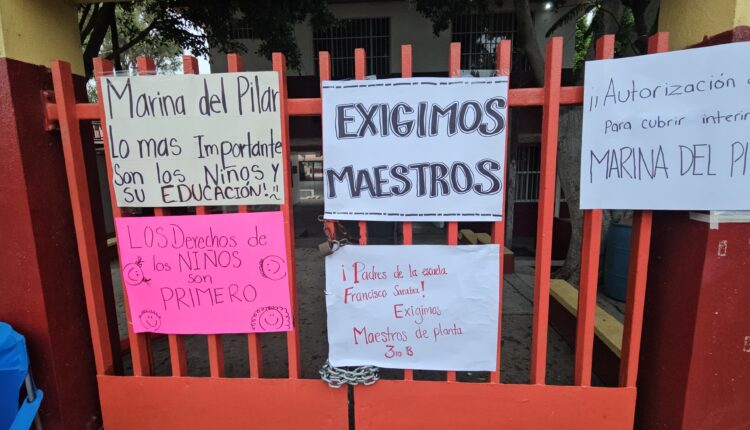 Marina del Pilar
Lo mas Importante
Son los Niños y
SU EDUCACIÓN!¡¡
EXIGIMOS
MAESTROS
¡¡Autorización
Para cubrir
MARINA DEL
LOS Derechos de
los NIÑOS
son
PRIMERO
¡Padres de la escuela
Francisco Sarabia!
Exigimos
Maestros de planta
3ro B